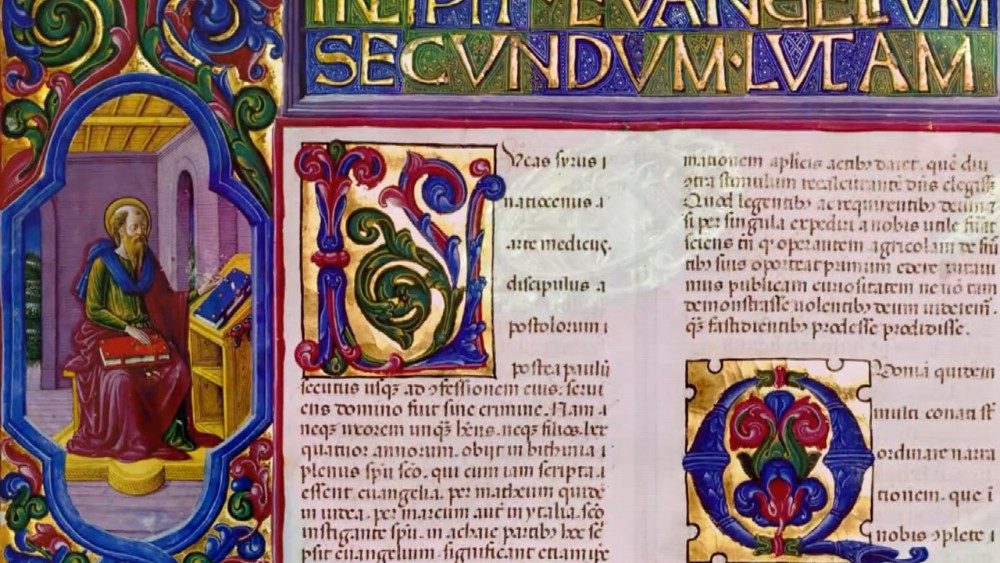 INCIPIT EVANGELIVM
SECVNDVM·LVCAM
LVcas syrus
natiocenus
arte medicus,
discipulus a
postolorum
postea paulū
secutus usqꝫ ad ꝯfessionem eius. serui
ens domino fuit sine crimine. Nam
neqꝫ uxorem unqꝫ hēns. neqꝫ filios. lxx
quatior annorum. obijt in bithinia
plenus spū sc̄o. qui cum iam scripta
essent euangelia. per matheum quidē
in iudea. per marcum aut̄ in ytalia. sc̄o
instigante spū. in achaie partibꝫ hoc sc̄
psit euangelium. significans etiam ip̄e
mationem ap̄licis actibꝫ daret. quē diu
ꝯtra stimulum recalcitrantē dn̄s elegiss̄
Quod legentibꝫ ac requirentibꝫ deum
si per singula expediri a nobis utile fuiss̄
sciens tn̄ qꝫ operantem agricolam de fru
ctibꝫ suis oporteat primum edere. uitaui
mus publicam curiositatem ne nō tam
demonstrasse uolentibꝫ deum uideremr̄
qꝫ fastidientibꝫ prodesse prodidisse.
QVoniā quidem
multi conati st̄
ordinare narra
tionem. que ī
nobis ꝯplete